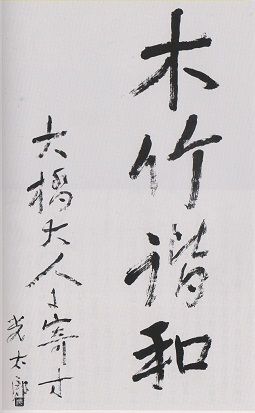 木竹諧和
大橋大人に寄す
光太郎